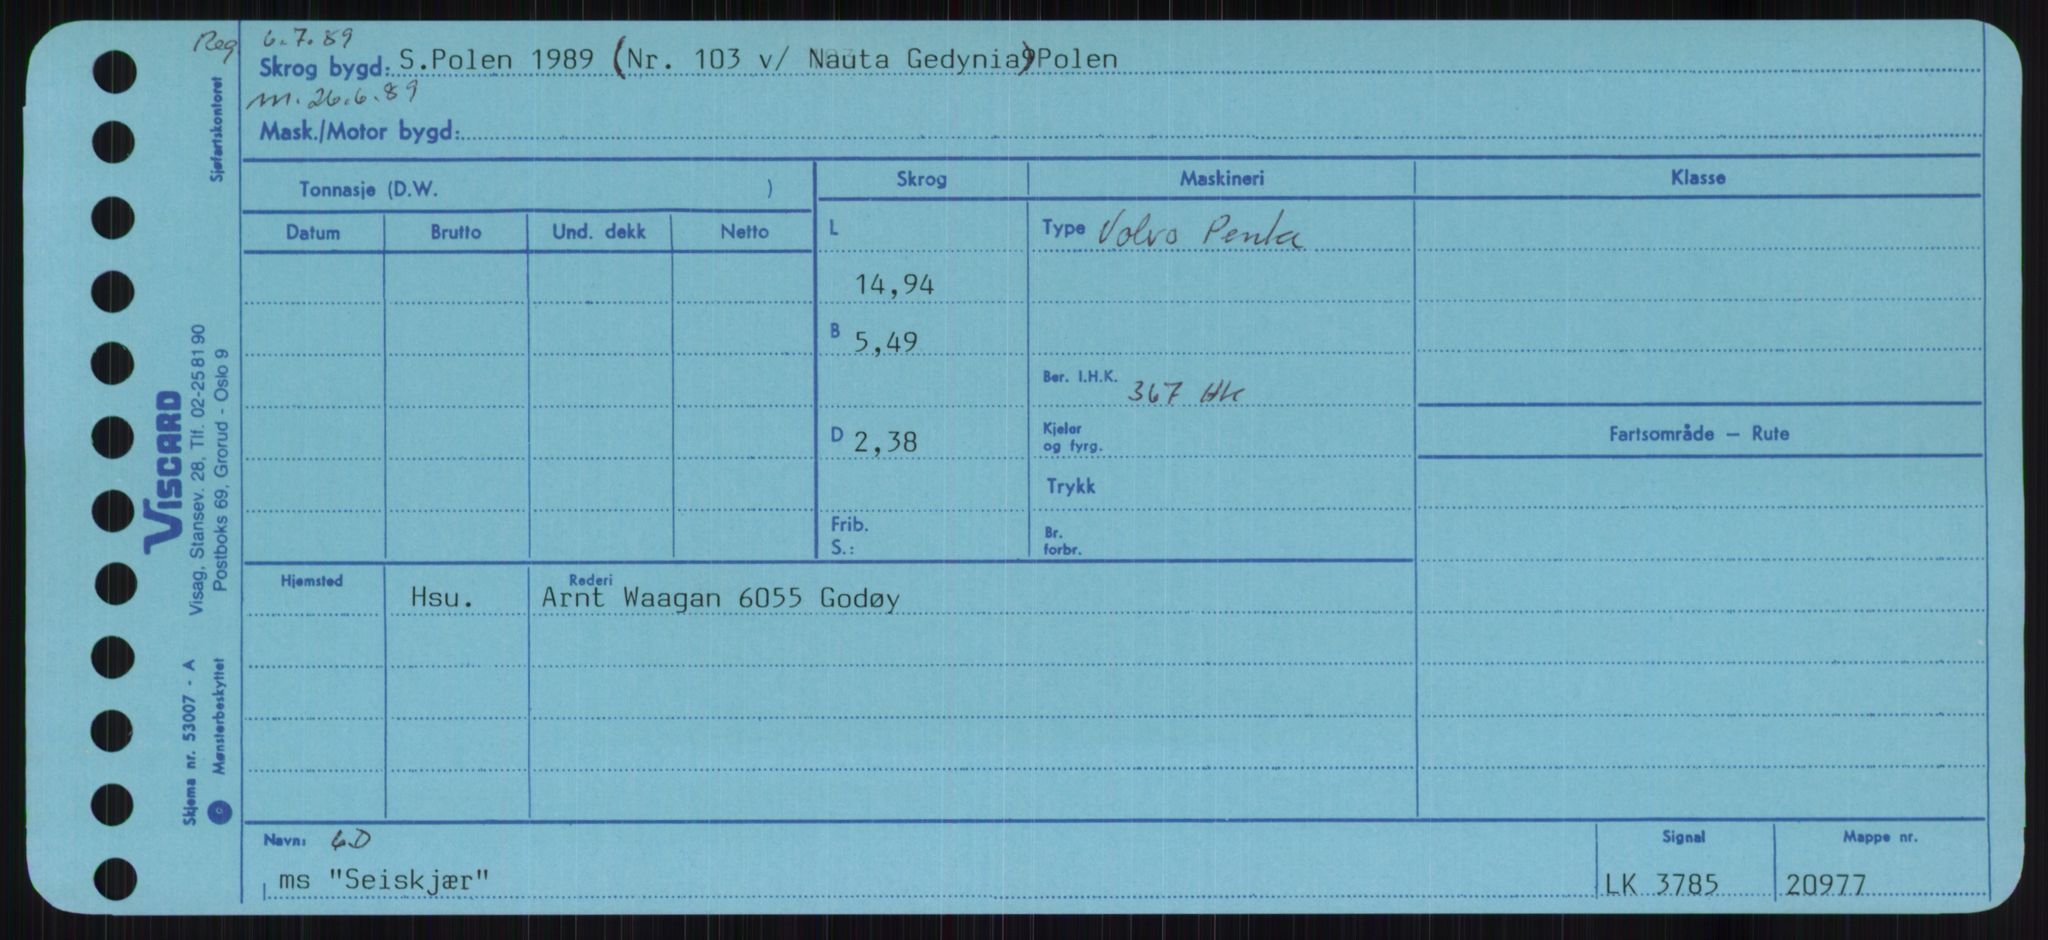 Reg 6.7.89
Skrog bygd: S.Polen 1989 (Nr. 103 v/ Nauta Gedynia) Polen
m. 26.6.89
Mask./Motor bygd:
Sjøfartskontoret
VISCARD
Visag, Stansev. 28, Tlf. 02-25 81 90
Postboks 69, Grorud - Oslo 9
Skjema nr. 53007 - A
Mønsterbeskyttet
Tonnasje (D.W. )
Skrog
Maskineri
Klasse
Datum Brutto Und. dekk Netto
L
14,94
B 5,49
D 2,38
Frib.
S.:
Type Volvo Penta
Ber. I.H.K. 367 HK
Kjeler
og fyrg.
Trykk
Br.
forbr.
Fartsområde — Rute
Hjemsted Rederi
Hsu. Arnt Waagan 6055 Godøy
Navn: 6D
ms "Seiskjær"
Signal
LK 3785
Mappe nr.
20977